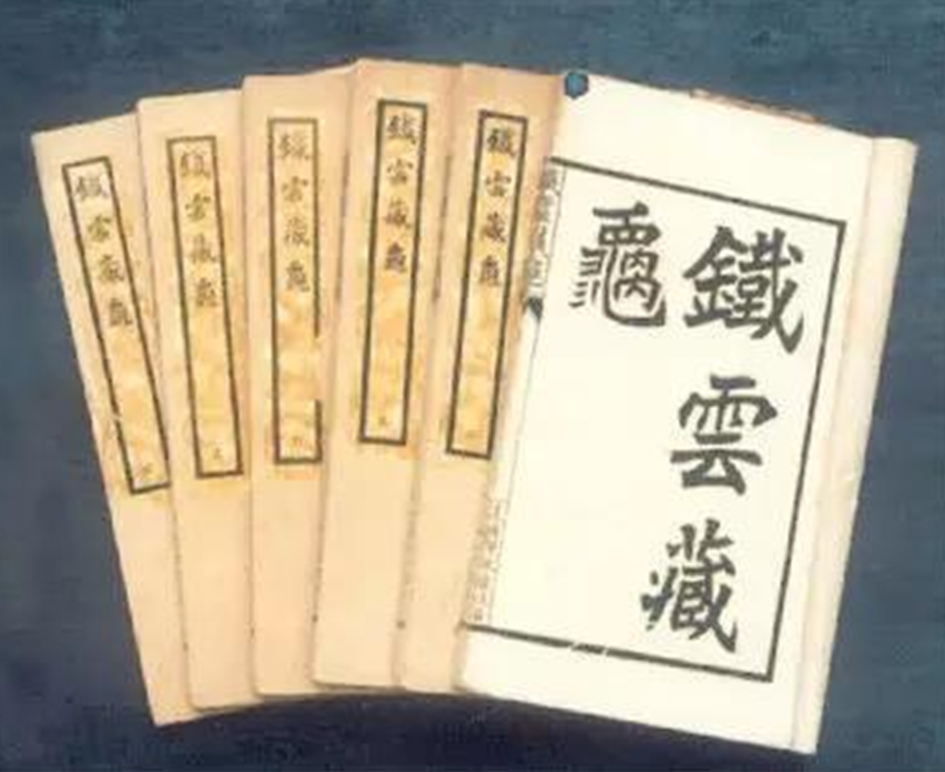 鐵雲藏
龜
鐵雲藏龜
鐵雲藏龜
鐵雲藏龜
鐵雲藏龜
鐵雲藏龜